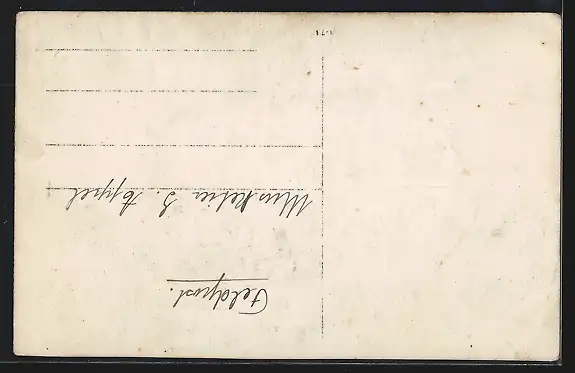 Feldpost.
Musketier J. Appel